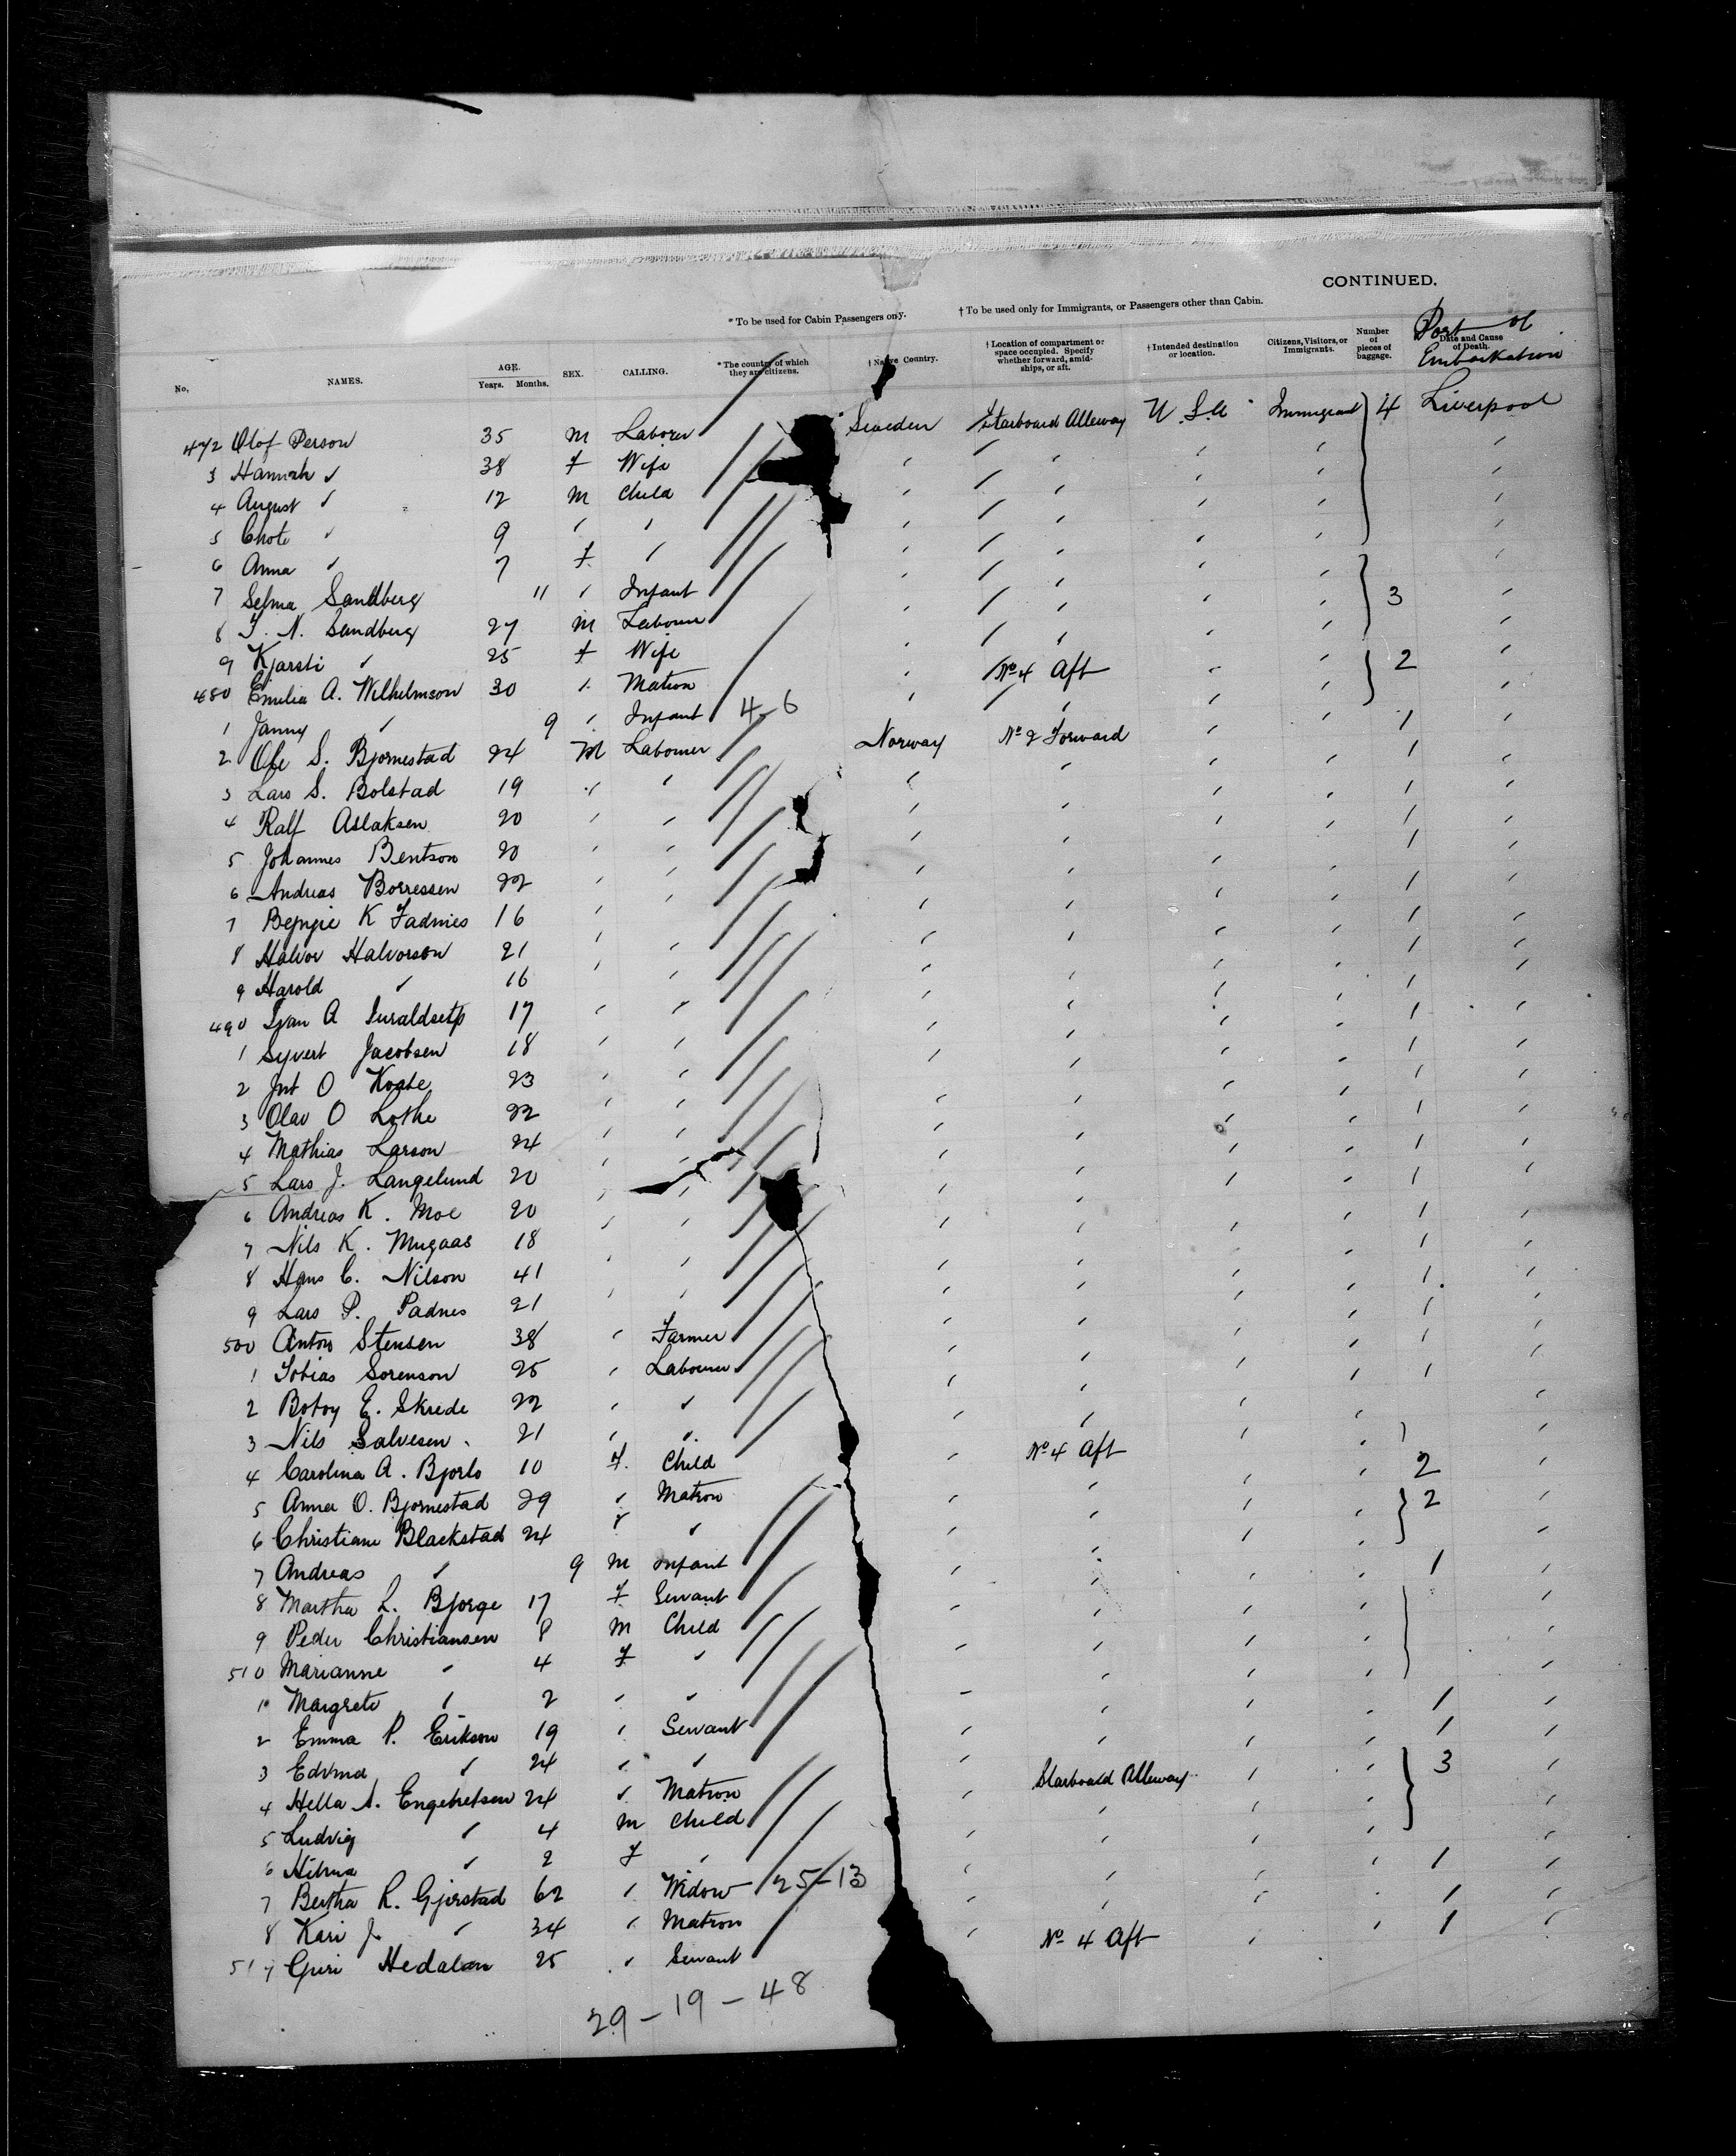 CONTINUED.
* To be used for Cabin Passengers only. † To be used only for Immigrants, or Passengers other than Cabin.
No. NAMES. AGE. Years. Months. SEX. CALLING. * The country of which they are citizens. † Native Country. † Location of compartment or space occupied. Specify whether forward, amidships, or aft. † Intended destination or location. Citizens, Visitors, or Immigrants. Number of pieces of baggage. Date and Cause of Death. Port of Embarkation
472 Olof Person 35 M Laborer Sweden Starboard Alleway U.S.A Immigrant 4 Liverpool
3 Hannah " 38 F Wife " " " " "
4 August " 12 M Child " " " " "
5 " 9 " " " " " " "
6 Anna " 7 F " " " " " "
7 Selma Sandberg 11 " Infant " " " " 3 "
8 J. N. Sandberg 27 M Labourer " " " " "
9 Kjarsti " 25 F Wife " " " " "
480 Emilia A. Wilhelmson 30 " Matron " No 4 Aft " " 2 "
1 Janny " 9 " Infant 4-6 " " " " "
2 Ole S. Bjornestad 24 M Labourer Norway No 2 Forward " " 1 "
3 Lars S. Bolstad 19 " " " " " " 1 "
4 Ralf Aslaksen 20 " " " " " " 1 "
5 Johannes Bentson 20 " " " " " " 1 "
6 Andreas Borressen 22 " " " " " " 1 "
7 K Fadnes 16 " " " " " " 1 "
8 Halvor Halvorson 21 " " " " " " 1 "
9 Harold " 16 " " " " " " 1 "
490 A 17 " " " " " " 1 "
1 Syvert Jacobsen 18 " " " " " " 1 "
2 O 23 " " " " " " 1 "
3 Olav O Lothe 22 " " " " " " 1 "
4 Mathias Larson 24 " " " " " " 1 "
5 Lars J. Langelund 20 " " " " " " 1 "
6 Andreas K. Moe 20 " " " " " " 1 "
7 Nils K. Mugaas 18 " " " " " " 1 "
8 Hans C. Nilson 41 " " " " " " 1 "
9 Lars P. Padnes 21 " " " " " " 1 "
500 Anton Stensen 38 " Farmer " " " " 1 "
1 Tobias Sorenson 25 " Labourer " " " " 1 "
2 E. Skrede 22 " " " " " " 1 "
3 Nils Salvesen 21 " " " " " " "
4 Carolina A. Bjorlo 10 F Child " No 4 Aft " " 2 "
5 Anna O. Bjornestad 29 " Matron " " " " "
6 Christiane Blackstad 24 " " " " " " 2 "
7 Andreas " 9 M Infant " " " " "
8 Martha L. Bjorge 17 F Servant " " " " 1 "
9 Peder Christiansen 8 M Child " " " " "
510 Marianne " 4 F " " " " " "
1 Margrete " 2 " " " " " " "
2 Emma P. Erikson 19 " Servant " " " " 1 "
3 " 24 " " " " " " 1 "
4 Hella A. Engebretsen 24 " Matron " Starboard Alleway " " 3 "
5 Ludvig " 4 M Child " " " " "
6 Hilma " 2 F " " " " " "
7 Bertha R. Gjerstad 62 " Widow 25-13 " " " " 1 "
8 Kari J. " 34 " Matron " " " " 1 "
51 Guri Hedalen 25 " Servant " No 4 Aft " " 1 "
29-19-48